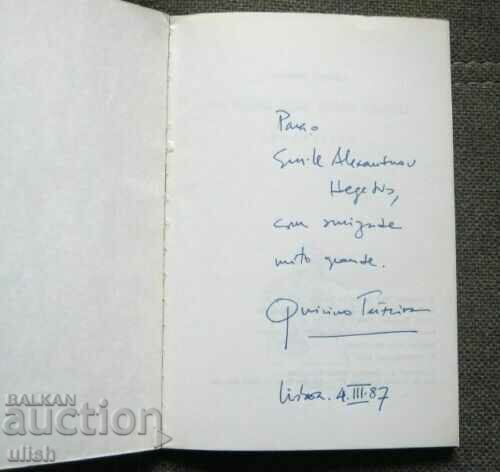 Para o
Emile Alexandrov
Hegedus,
com amizade
muito grande.
Quirino Teixeira
Lisboa. 4.III.87
BALKAN
auction
ulish